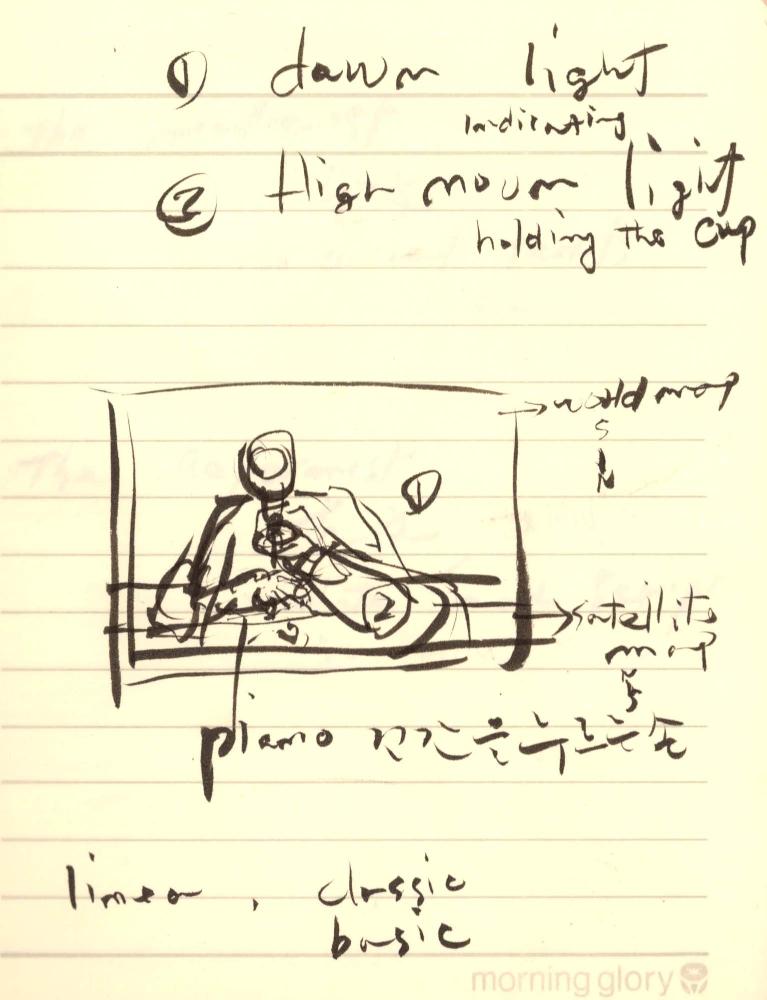 ① dawn light
indicating
② High moum light
holding the cup
→ world map
S
N
①
②
→ satellite
map
N
S
piano 건간을 누르는 손
linear, classic
basic
morning glory